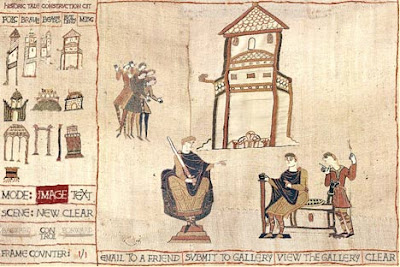 HISTORIC TALE CONSTRUCTION CIT
FOLC BEASTS MISC
MODE: IMAGE TEXT
SCENE: NEW CLEAR
FRAME COUNTER: 1/1
EMAIL TO A FRIEND SUBMIT TO GALLERY VIEW THE GALLERY CLEAR